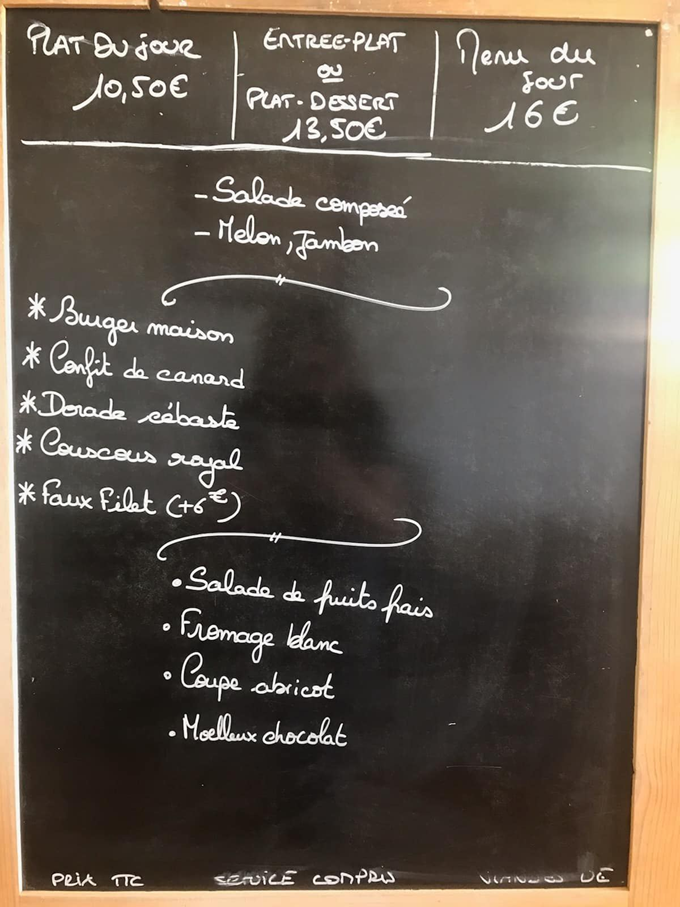 PLAT DU jOUR
10,50€
ENTREE-PLAT
ou
PLAT-DESSERT
13,50€
Menu du
jour
16€
- Salade composeé
- Melon, Jambon
* Burger maison
* Confit de canard
* Dorade sébaste
* Couscous royal
* Faux Filet (+6€)
• Salade de fruits frais
• Fromage blanc
• Coupe abricot
• Moelleux chocolat
PRIX TTC SERVICE COMPRIS VIANDES DE